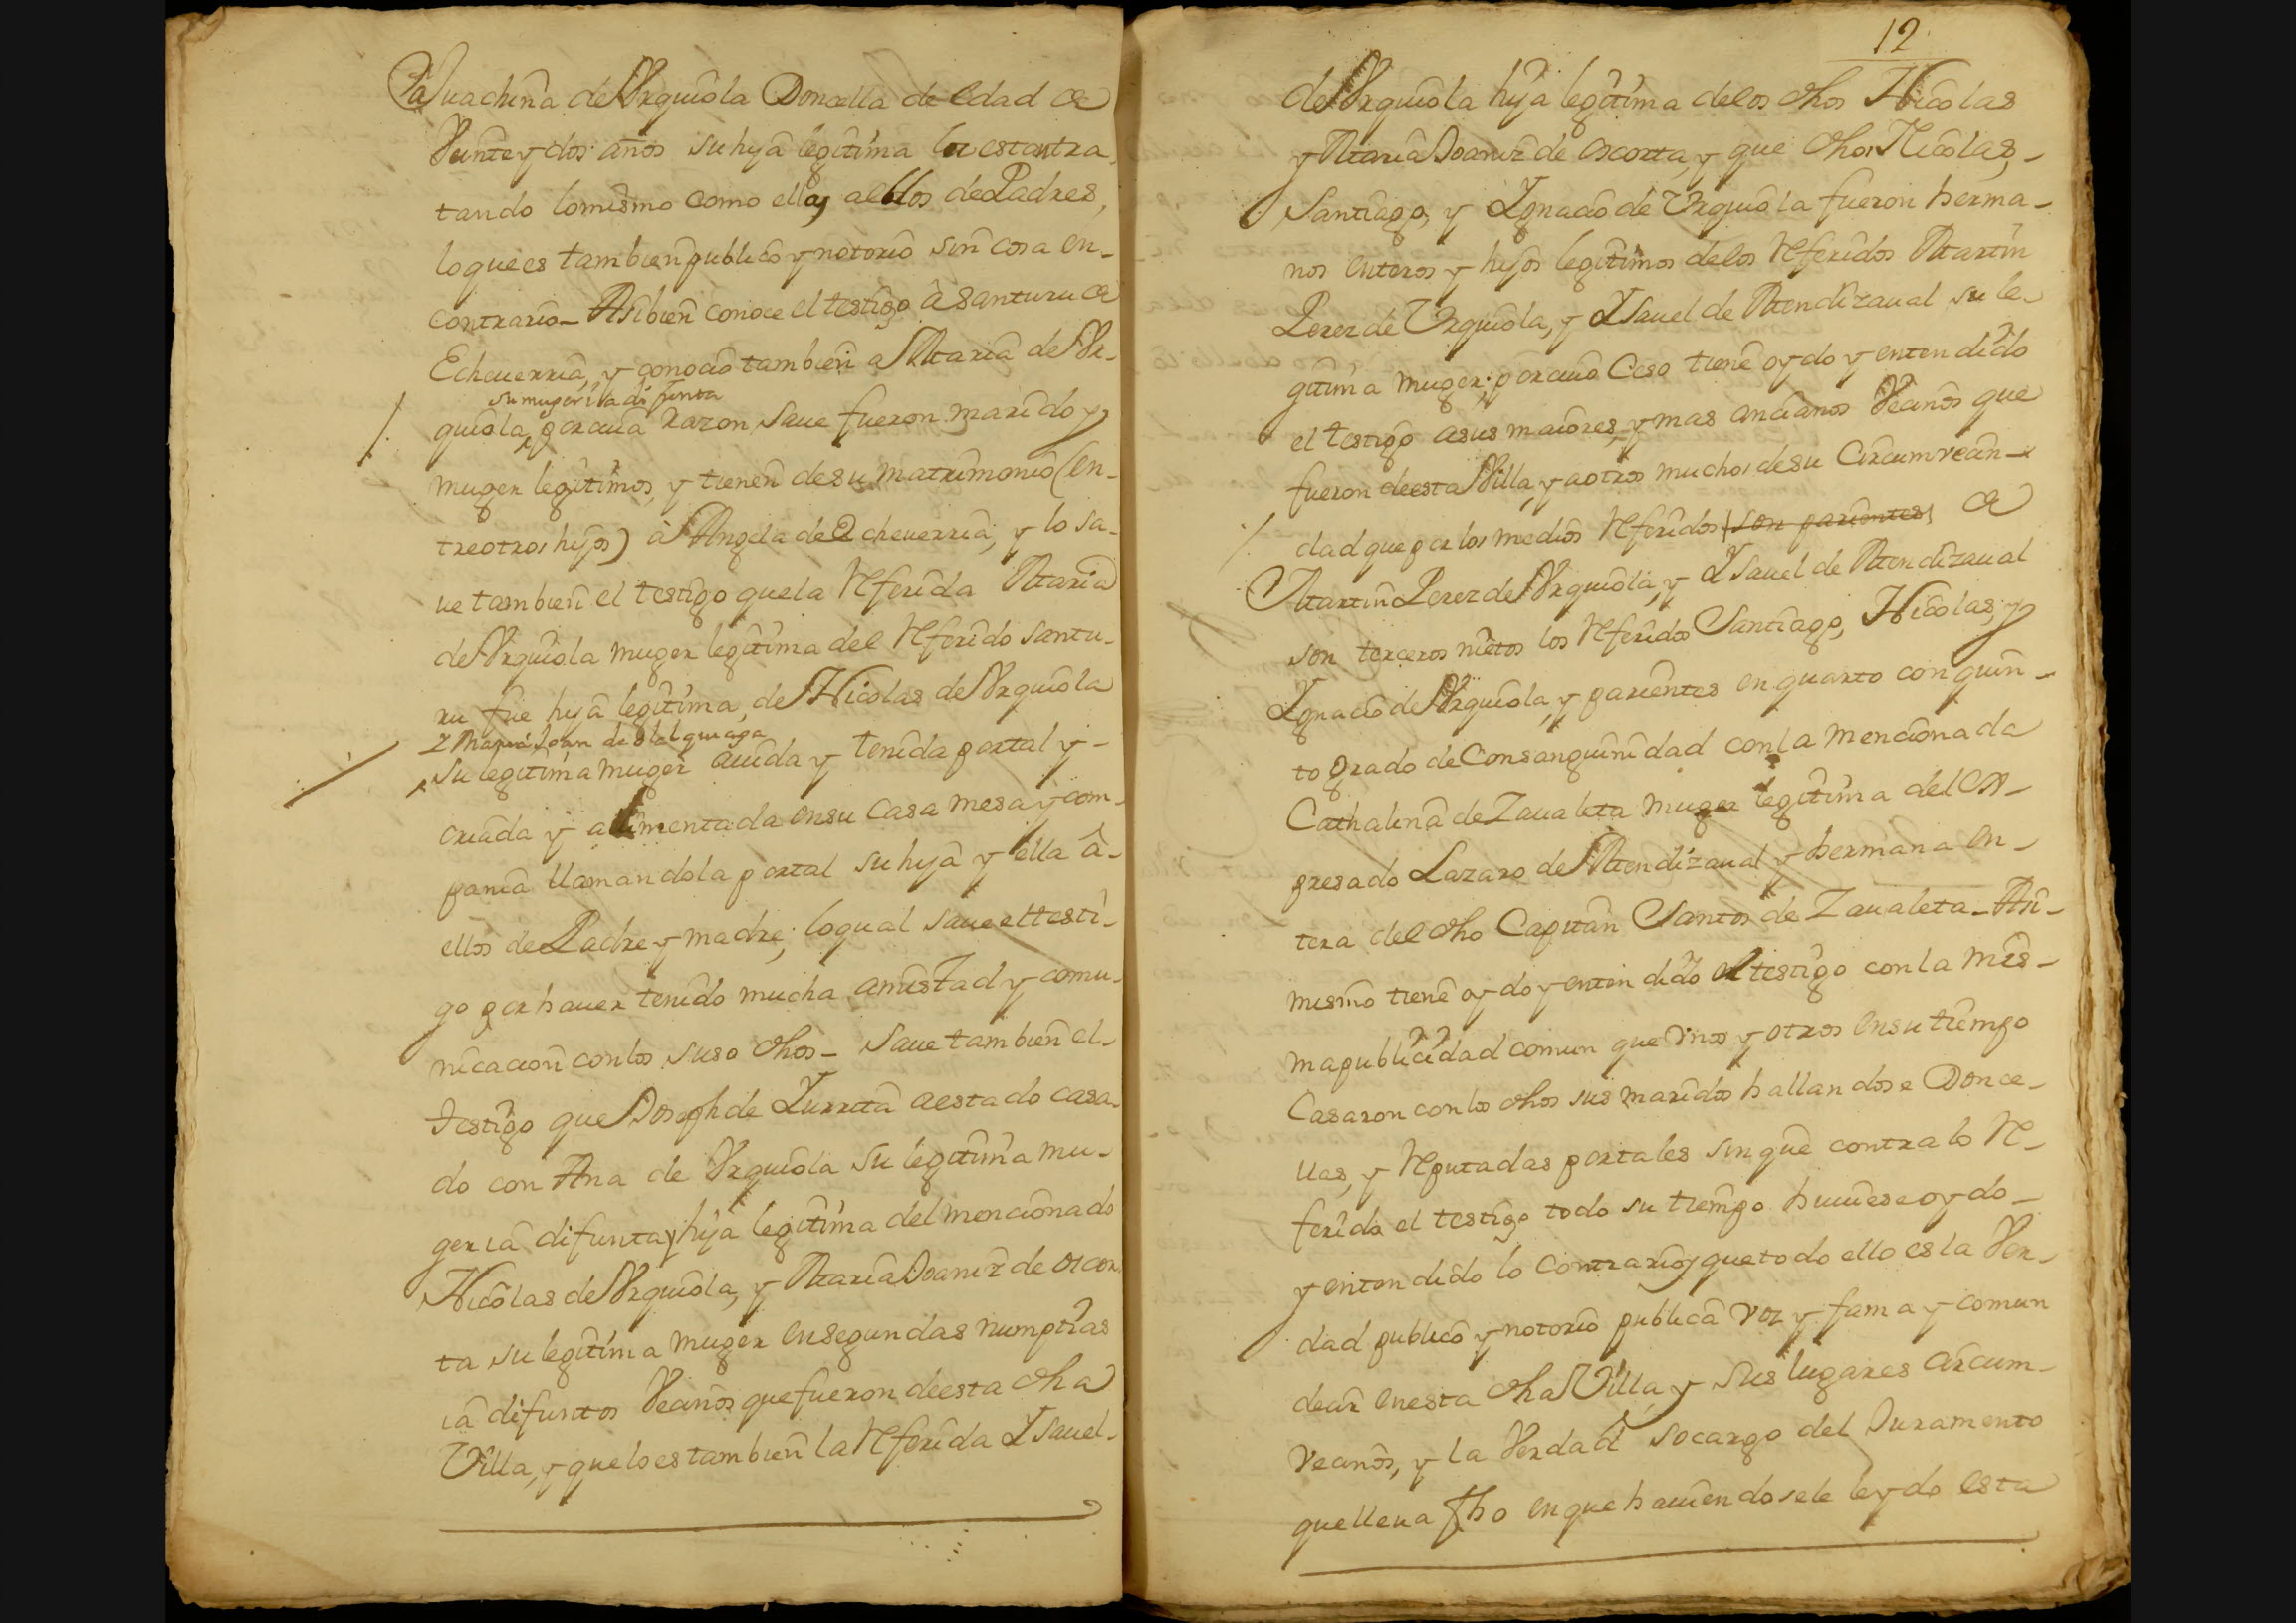 a Juachina de Vrquiola Donçella de edad de
Veinte y dos años su hija legitima la esta tra
tando lo mismo como ellas a ellos de Padres,
lo que es tambien publico y notorio sin cosa en-
contrario - Asibien conoce el testigo à Santuru de
Echeuerria, y conocio tambien a Maria de Vr-
su muger ia difunta
quiola, por cuia razon saue fueron marido y
muger legitimos, y tienen de su matrimonio (en-
tre otros hijos) à Angela de Echeuerria, y lo sa-
ue tambien el testigo que la Referida Maria
de Vrquiola muger legitima del Referido Santu-
ru fue hija legitima, de Nicolas de Vrquiola
su legitima muger auida y tenida por tal y -
criada y alimentada en su casa mesa y com-
pania llamandola por tal su hija y ella à-
ellos de Padre y madre; lo qual saue el testi-
go por hauer tenido mucha amistad y comu-
nicacion con los suso dhos - Saue tambien el-
testigo que Joseph de Yurrita a estado casa-
do con Ana de Vrquiola su legitima mu-
ger ia difunta, hija legitima del mencionado
Nicolas de Vrquiola, y Maria Joaniz de oscor
ta su legitima muger en segundas numptias
ia difuntos Vecinos que fueron de esta dha
Villa, y que lo es tambien la Referida Ysauel-
12
de Vrquiola hija legitima de los dhos Nicolas
y Maria Joaniz de oscorta, y que dhos Nicolas,-
Santiago, y Ygnacio de Vrquiola fueron herma-
nos enteros y hijos legitimos de los Referidos Martin
Perez de Vrquiola, y Ysauel de Mendizaual su le-
gitima muger; por cuio caso tiene oydo y entendido
el testigo a sus maiores, y mas ancianos Vecinos que
fueron de esta Villa, y a otros muchos de su Circumvecin-
dad que por los medios Referidos son parientes de
Martin Perez de Vrquiola, y Ysauel de Mendizaual
son terceros nietos los Referidos Santiago, Nicolas, y
Ygnacio de Vrquiola, y parientes en quarto con quin-
to grado de Consanguinidad con la mencionada
Cathalina de Zaualeta muger legitima del Ex-
presado Lazaro de Mendizaual y hermana en-
tera del dho Capitan Santos de Zaualeta - Asi-
mismo tiene oydo y entendido el testigo con la mis-
ma publicidad comun que vnos y otros en su tiempo
Casaron con los dhos sus maridos hallandose Donce-
llas, y Reputadas por tales sin que contra lo Re-
ferido el testigo todo su tiempo huuiese oydo-
y entendido lo contrario, y que todo ello es la Ver-
dad publico y notorio publica voz y fama y comun
decir en esta dha Villa, y sus lugares circum-
vecinos, y la Verdad socargo del Juramento
que lleua fho en que hauiendosele leydo esta